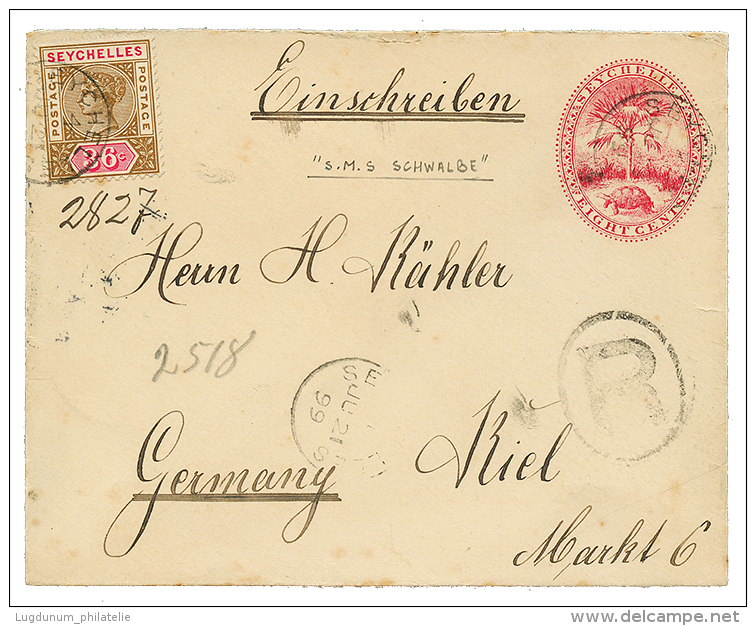 SEYCHELLES
POSTAGE
POSTAGE
36c
Einschreiben
"S.M.S SCHWALBE"
SEYCHELLES
EIGHT CENTS
2827
Herrn H. Kähler
2518
R
JUL 21
99
Germany
Kiel
Markt 6
Lugdunum_philatelie
delcampe.net